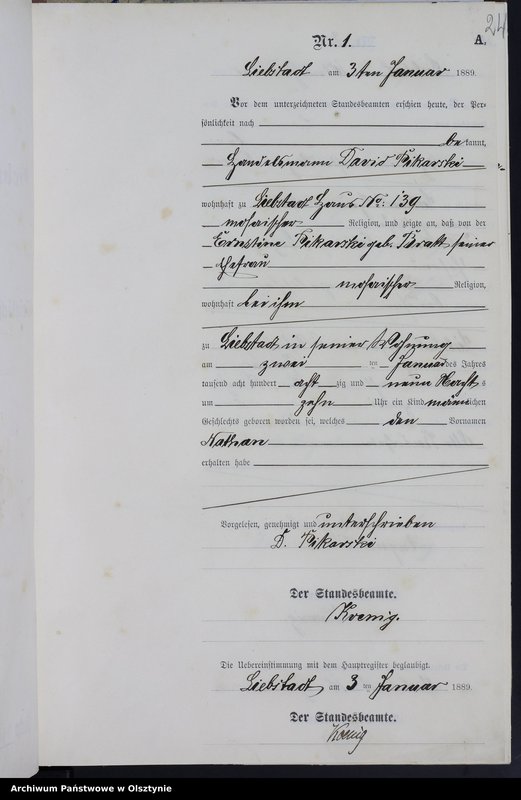 24.
Nr. 1.
A.
Liebstadt am 3ten Januar 1889.
Vor dem unterzeichneten Standesbeamten erschien heute, der Per-
sönlichkeit nach
be kannt,
Handelsmann David Pikarski
wohnhaft zu Liebstadt Haus No: 139
mosaischer Religion, und zeigte an, daß von der
Ernestine Pikarski geb. Bratt seiner
Ehefrau
mosaischer Religion,
wohnhaft bei ihm
zu Liebstadt in seiner Wohnung
am zwei ten Januar des Jahres
tausend acht hundert acht zig und neun Nacht s
um zehn Uhr ein Kind männ lichen
Geschlechts geboren worden sei, welches den Vornamen
Nathan
erhalten habe
Vorgelesen, genehmigt und unterschrieben
D. Pikarski
Der Standesbeamte.
Koenig.
Die Uebereinstimmung mit dem Hauptregister beglaubigt.
Liebstadt am 3 ten Januar 1889.
Der Standesbeamte.
Koenig
Archiwum Państwowe w Olsztynie